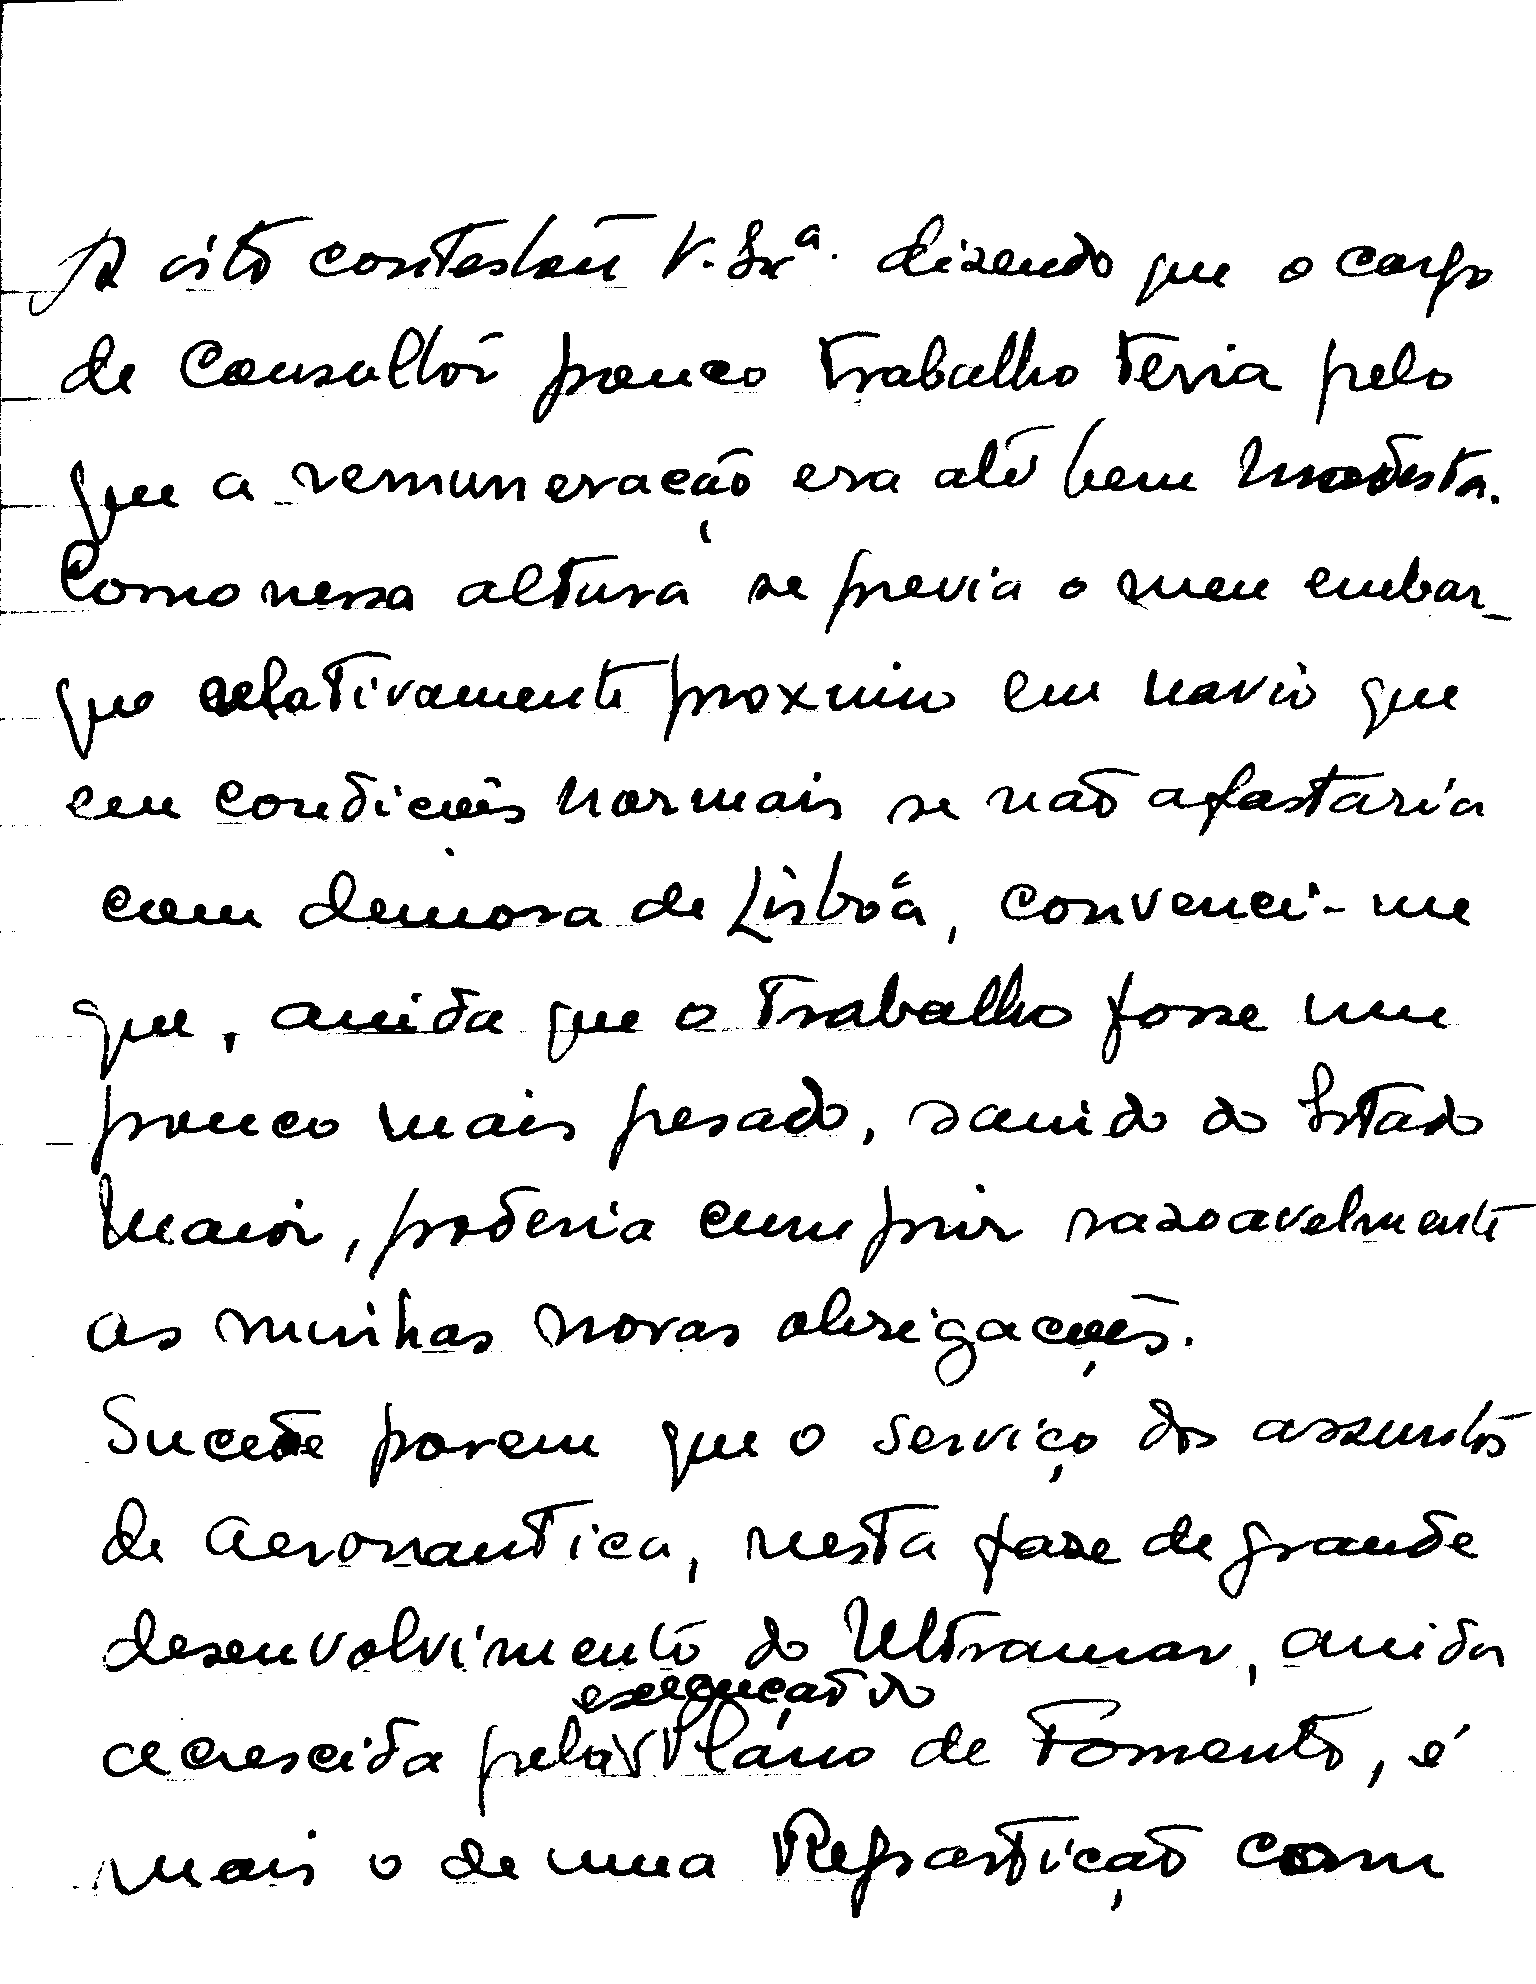 A isto contestou V. Exª. dizendo que o cargo
de Consultor pouco trabalho teria pelo
que a remuneração era até bem modesta.
Como nessa altura se previa o meu embar-
que relativamente proximo em navio que
em condições normais se não afastaria
com demora de Lisboa, convenci-me
que, ainda que o trabalho fosse um
pouco mais pesado, saindo do Estado
Maior, poderia cumprir razoavelmente
as minhas novas obrigações.
Sucede porem que o serviço dos assuntos
de aeronautica, nesta fase de grande
desenvolvimento do Ultramar, ainda
execução do
acrescida pela Plano de Fomento, é
mais o de uma Repartição com